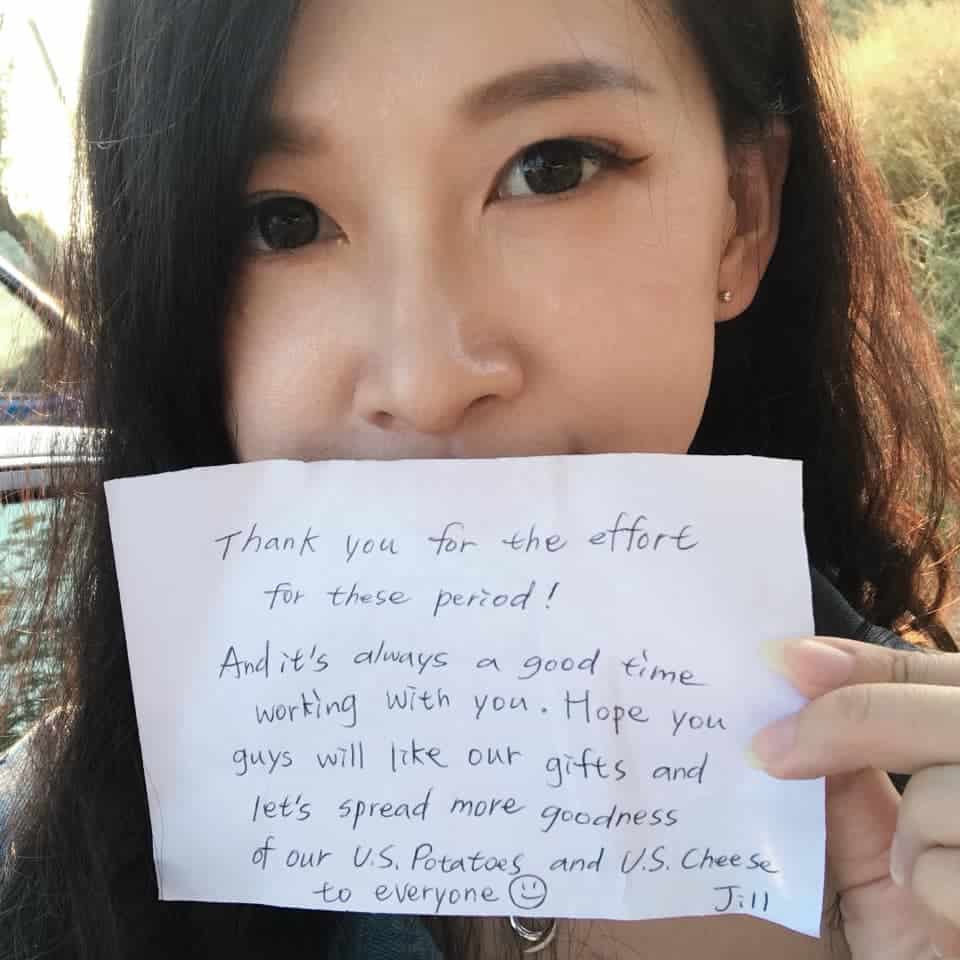 Thank you for the effort
for these period!
And it's always a good time
working with you. Hope you
guys will like our gifts and
let's spread more goodness
of our U.S. Potatoes and U.S. Cheese
to everyone ☺ Jill